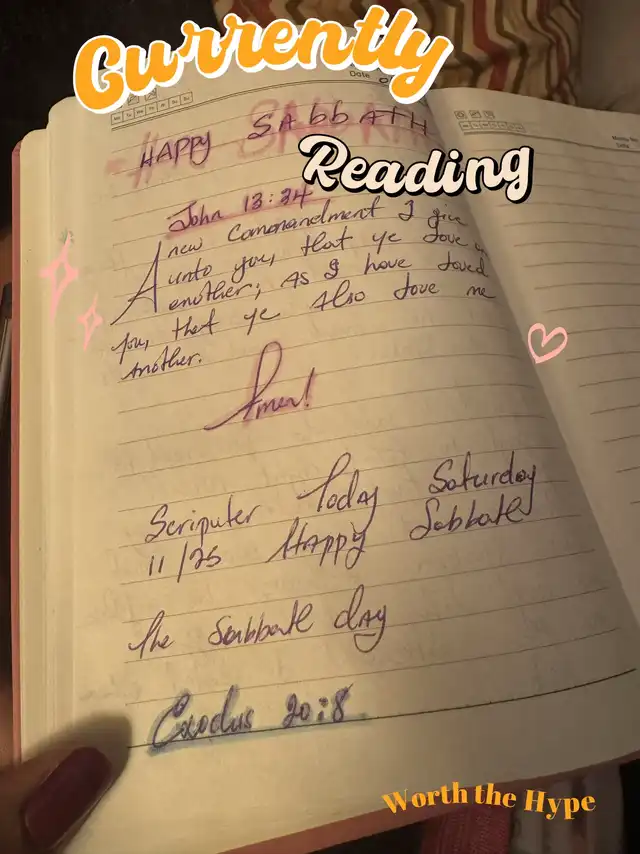 Currently
Date
Mo Tu We Th Fr Sa Su
HAPPY SAbbATH
Reading
John 13:34
A new Commandment I give
unto you, that ye Love
enother; As I have Loved
you, that ye Also Love me
Another.
Amen!
Scriputer Today Saturday
11/25 HAppy Sabbath
The Sabbath dAy
Exodus 20:8
Worth the Hype